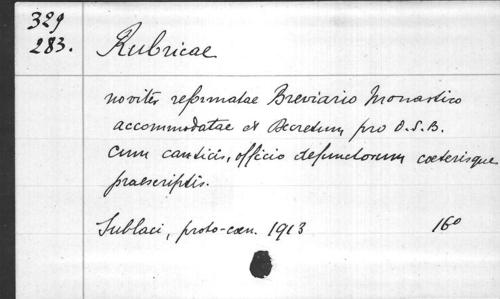 329
283.
Rubricae
noviter reformatae Breviario Monastico
accommodatae et Decretum pro O.S.B.
cum canticis, officio defunctorum caeterisque
praescriptis.
Sublaci, proto-coen. 1913 16°